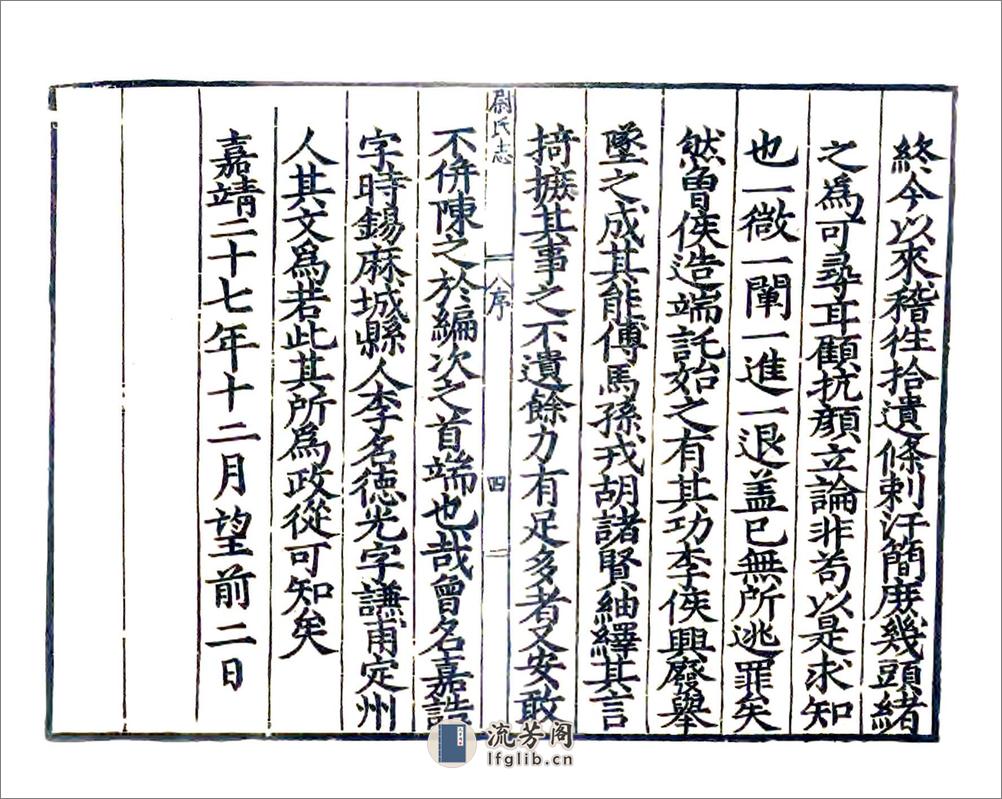 終今以來稽徃拾遺條刺汗簡庶幾頭緒
之爲可尋耳顧抗顔立論非苟以是求知
也一微一闡一進一退盖已無所逃罪矣
然魯侯造端託始之有其功李侯興廢舉
墜之成其能傅馬孫戎胡諸賢紬繹其言
掎摭其事之不遺餘力有足多者又安敢
不併陳之於編次之首端也哉曾名嘉誥
字時錫麻城縣人李名德光字謙甫定州
人其文爲若此其所爲政從可知矣
嘉靖二十七年十二月望前二日
尉氏志
序
四
二
流芳阁
lfglib.cn